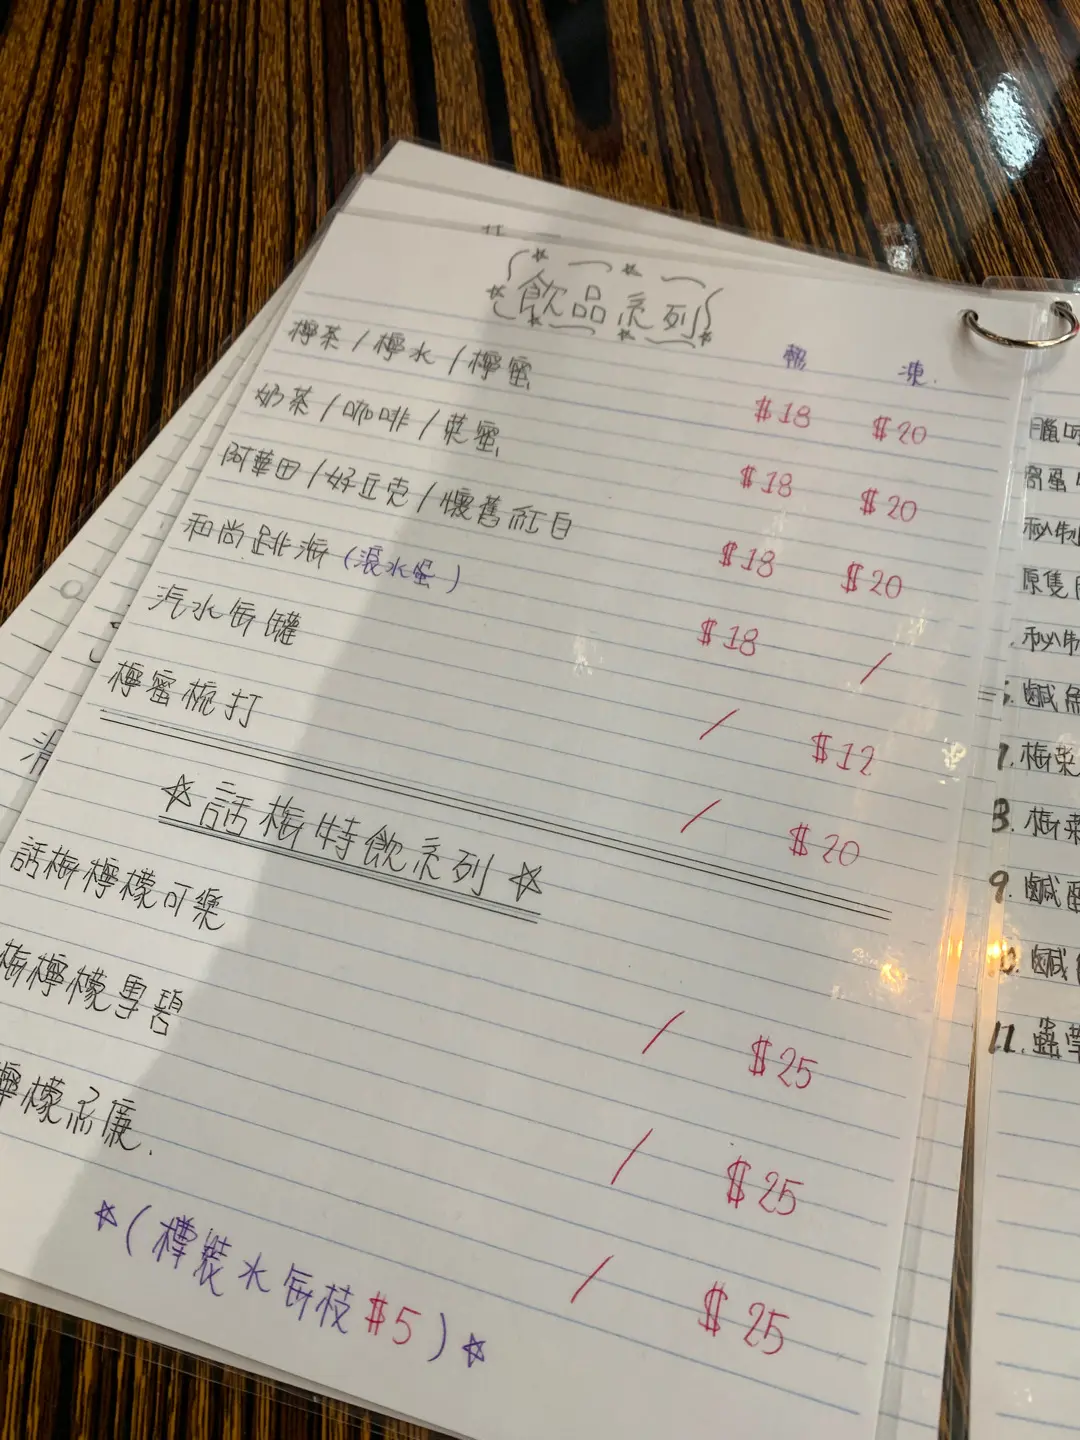 飲品系列
熱 凍
檸茶/檸水/檸蜜 $18 $20
奶茶/咖啡/菜蜜 $18 $20
阿華田/好立克/懷舊紅白 $18 $20
和尚跳海(滾水蛋) $18 /
汽水每罐 / $12
檸蜜梳打 / $20
☆話梅特飲系列☆
話梅檸檬可樂 / $25
梅檸檬雪碧 / $25
檸檬忌廉. / $25
☆(樽裝水每枝$5)☆
鹹
7. 梅菜
8. 梅
9. 鹹蛋
10. 鹹
11. 蟲草
原隻
秘制